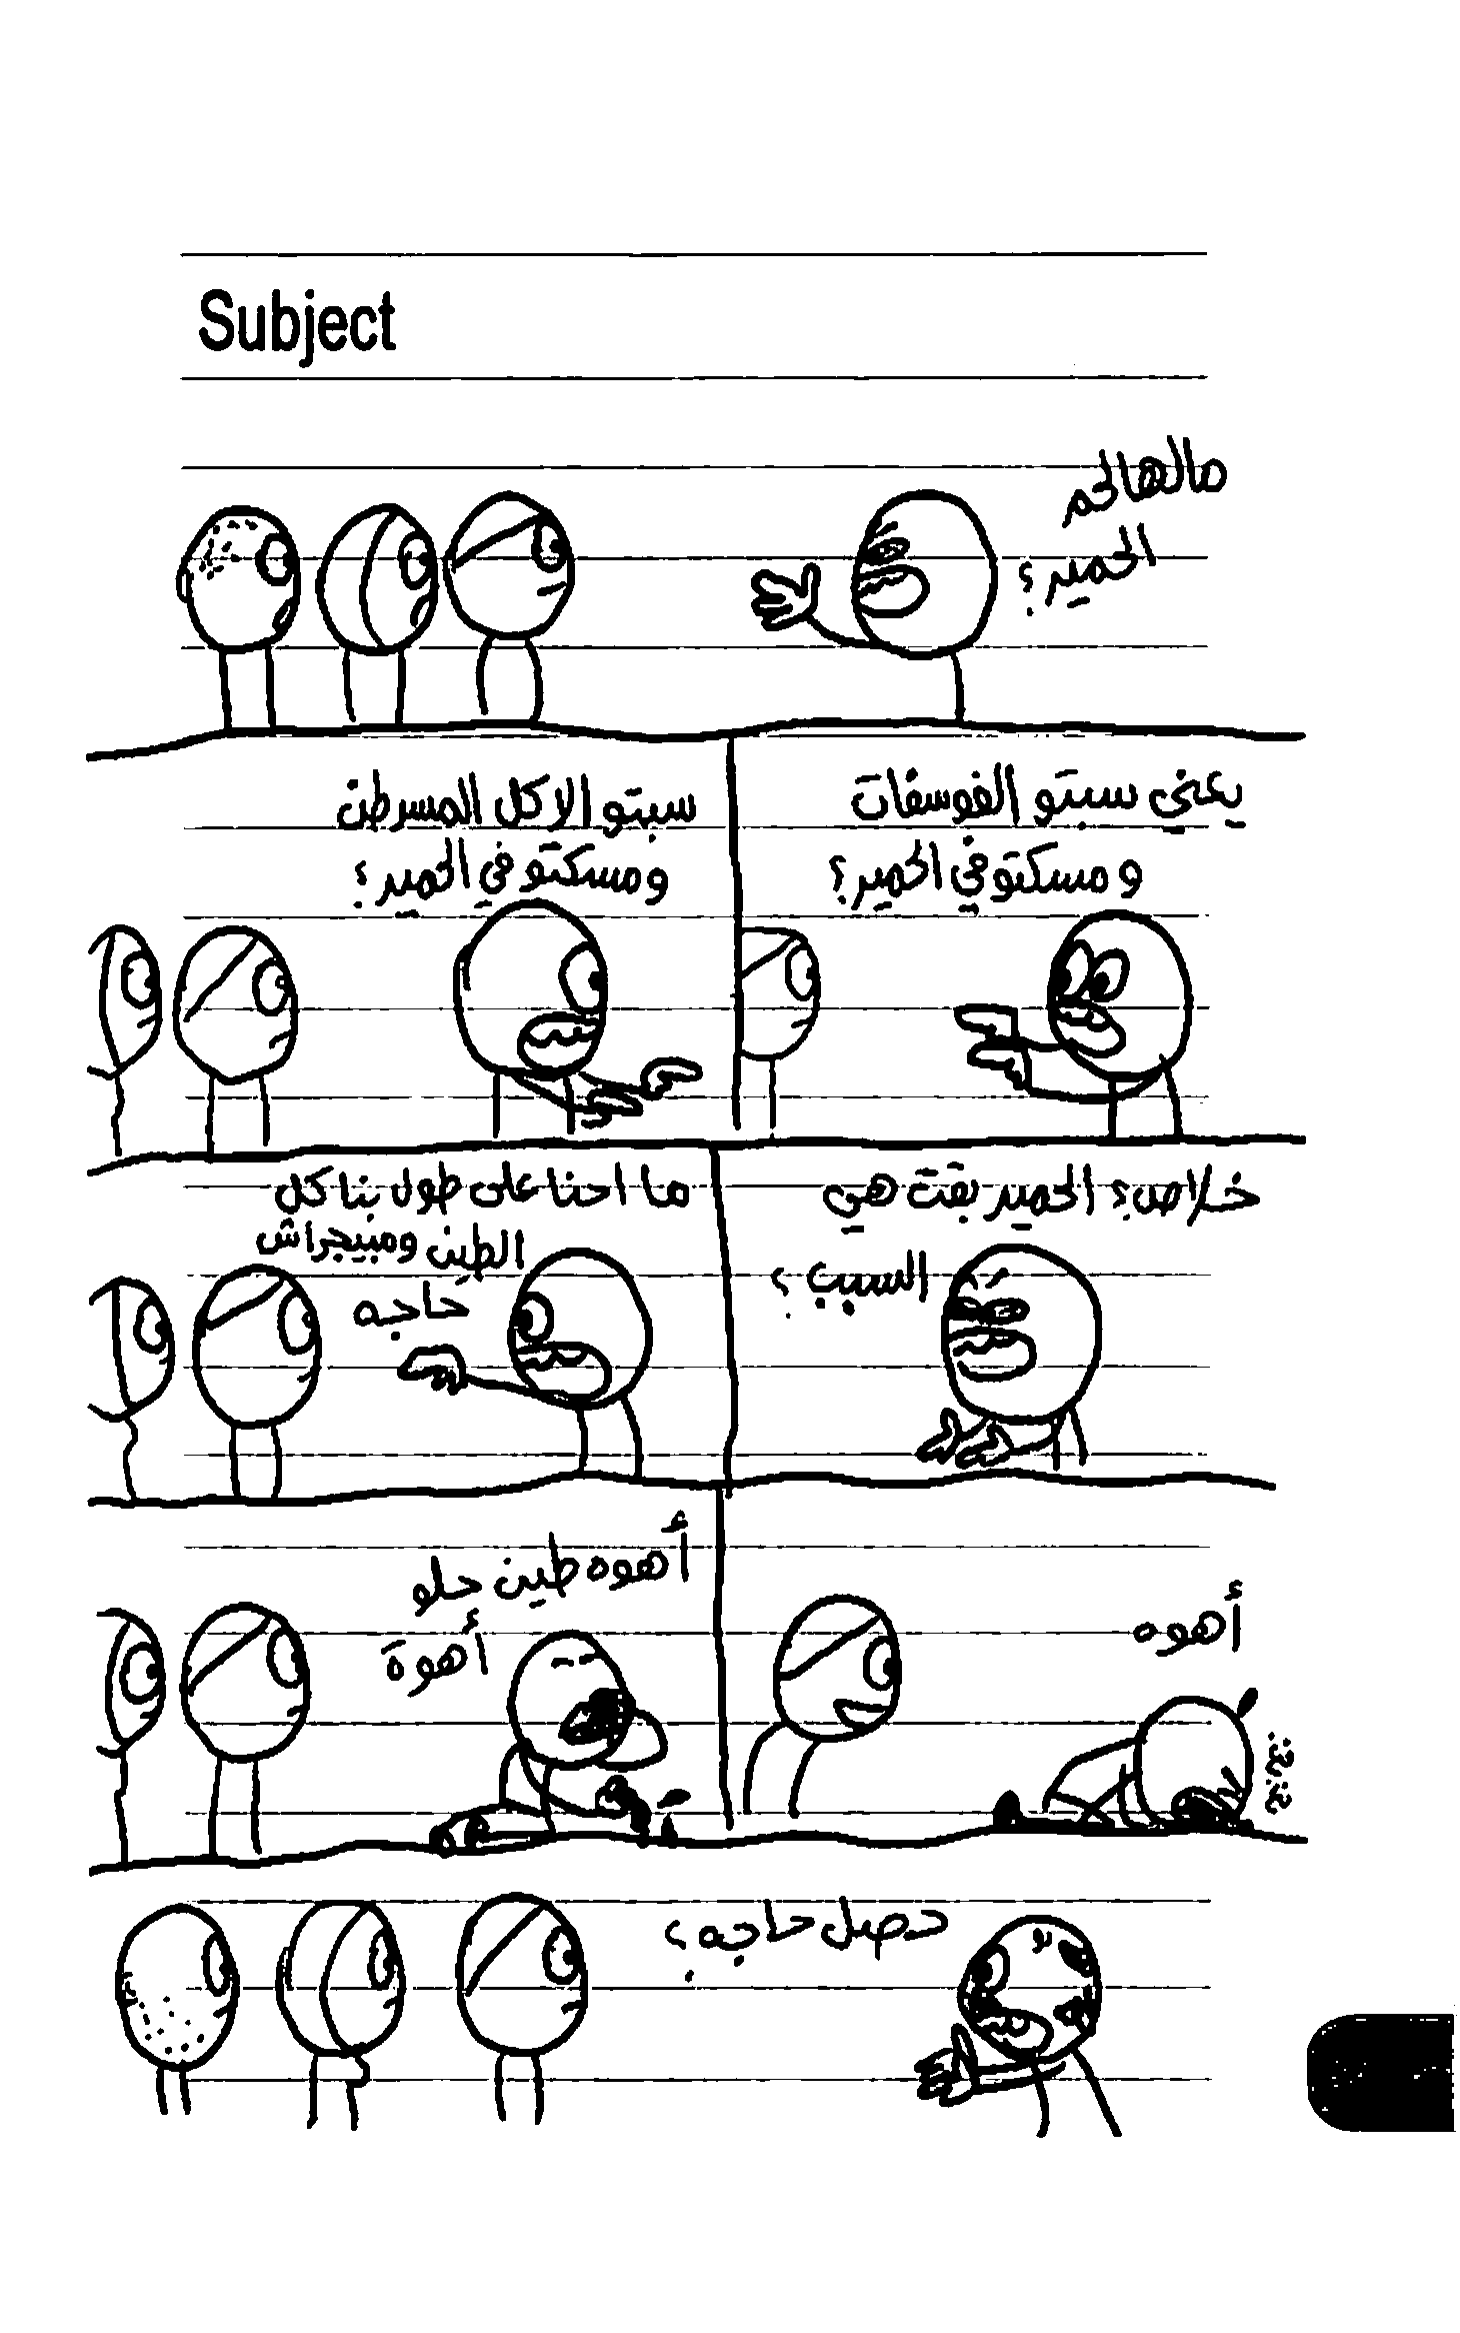 Subject
مالها لحم
الحمير؟
يعني سبتو الفوسفات
ومسكتو في الحمير؟
سبتو الاكل المسرطن
ومسكتو في الحمير؟
خلاص؟ الحمير بقت هي
السبب؟
ما احنا على طول بناكل
الطين ومبيجراش
حاجه
أهوه
أهوه طين حلو
أهوة
حصل حاجه؟